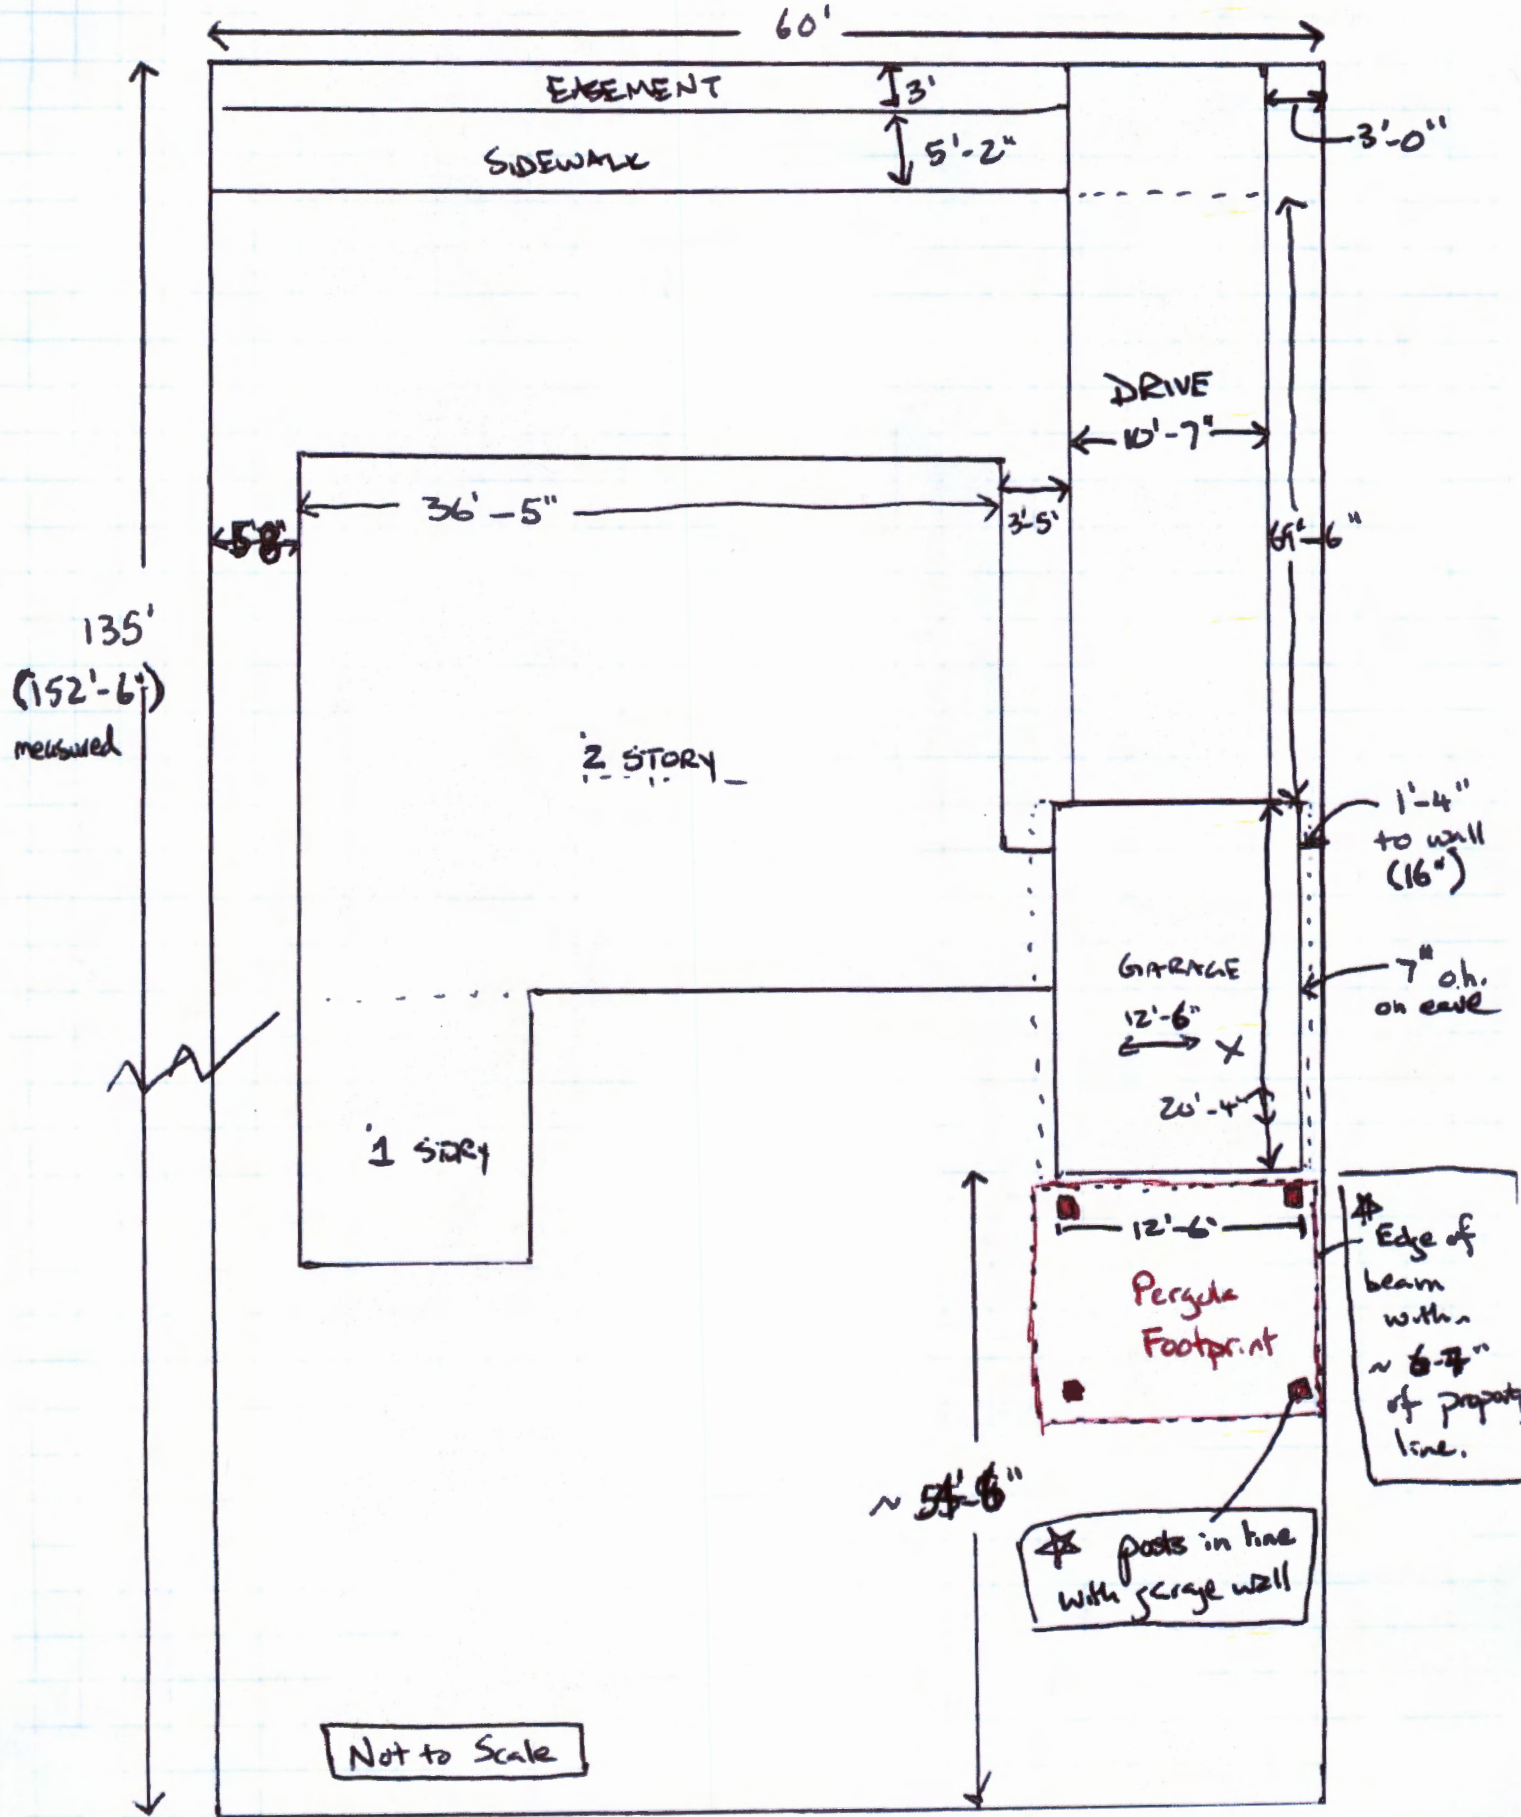 60'
EASEMENT
3'
3'-0"
SIDEWALK
5'-2"
DRIVE
10'-7"
36'-5"
3'-5'
5'8"
135'
(152'-6")
measured
2 STORY
1'-4"
to wall
(16")
GARAGE
12'-6"
X
20'-4"
7" o.h.
on eave
1 STORY
12'-6"
Pergula
Footprint
Edge of
beam
within
~
of property
line.
~
posts in line
with garage wall
Not to Scale